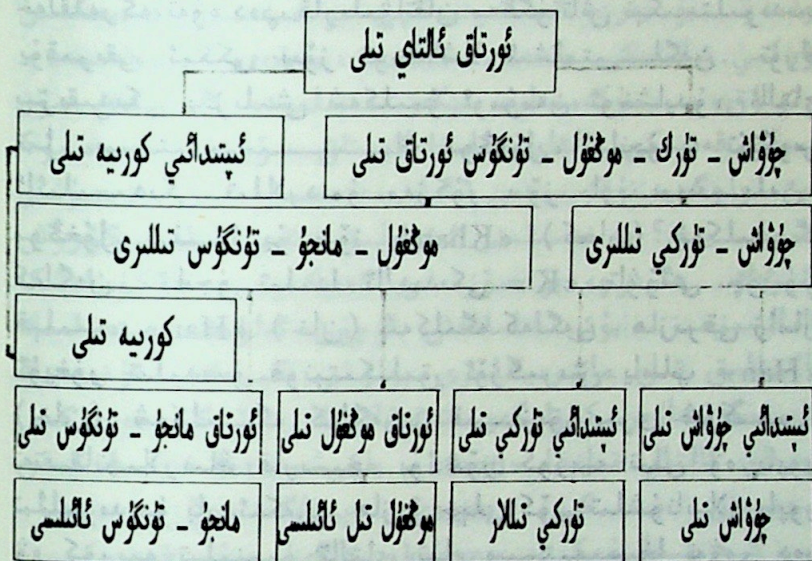 ئورتاق ئالتاي تىلى
چۇۋاش ـ تۈرك ـ موڭغۇل ـ تۇنگۇس ئورتاق تىلى
ئىپتىدائىي كورىيە تىلى
چۇۋاش ـ تۈركىي تىللىرى
موڭغۇل ـ مانجۇ ـ تۇنگۇس تىللىرى
كورىيە تىلى
ئىپتىدائىي چۇۋاش تىلى
ئىپتىدائىي تۈركىي تىلى
ئورتاق موڭغۇل تىلى
ئورتاق مانجۇ ـ تۇنگۇس تىلى
چۇۋاش تىلى
تۈركىي تىللار
موڭغۇل تىل ئائىلىسى
مانجۇ ـ تۇنگۇس ئائىلىسى